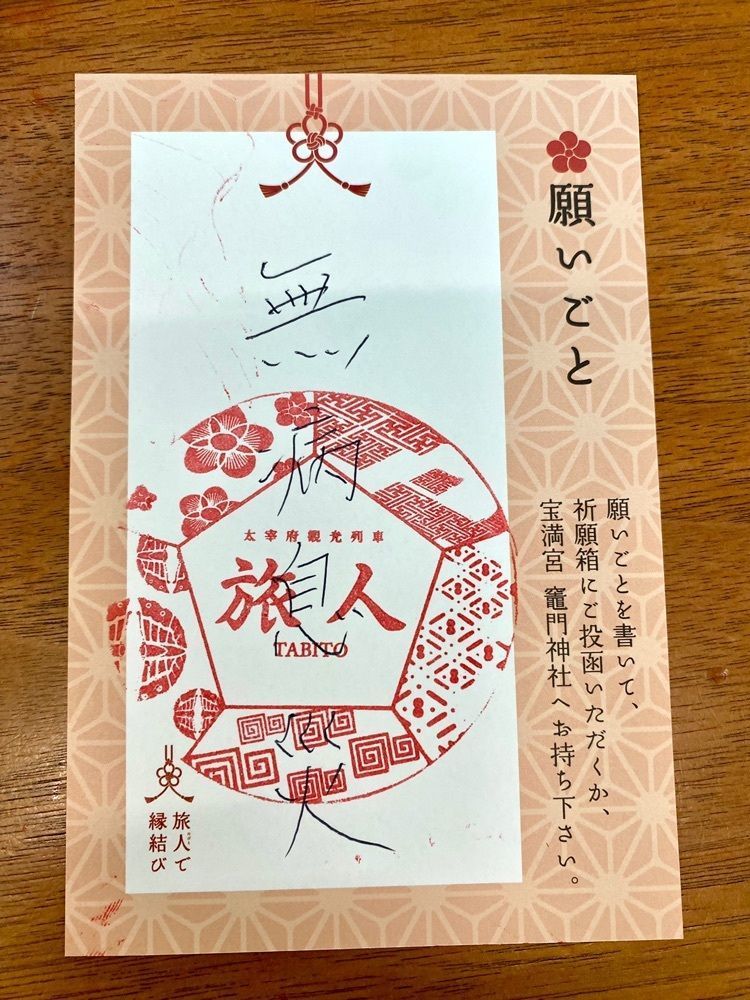 願いごと
願いごとを書いて、
祈願箱にご投函いただくか、
宝満宮 竈門神社へお持ち下さい。
無病息災
太宰府観光列車
旅人
TABITO
旅人で
縁結び